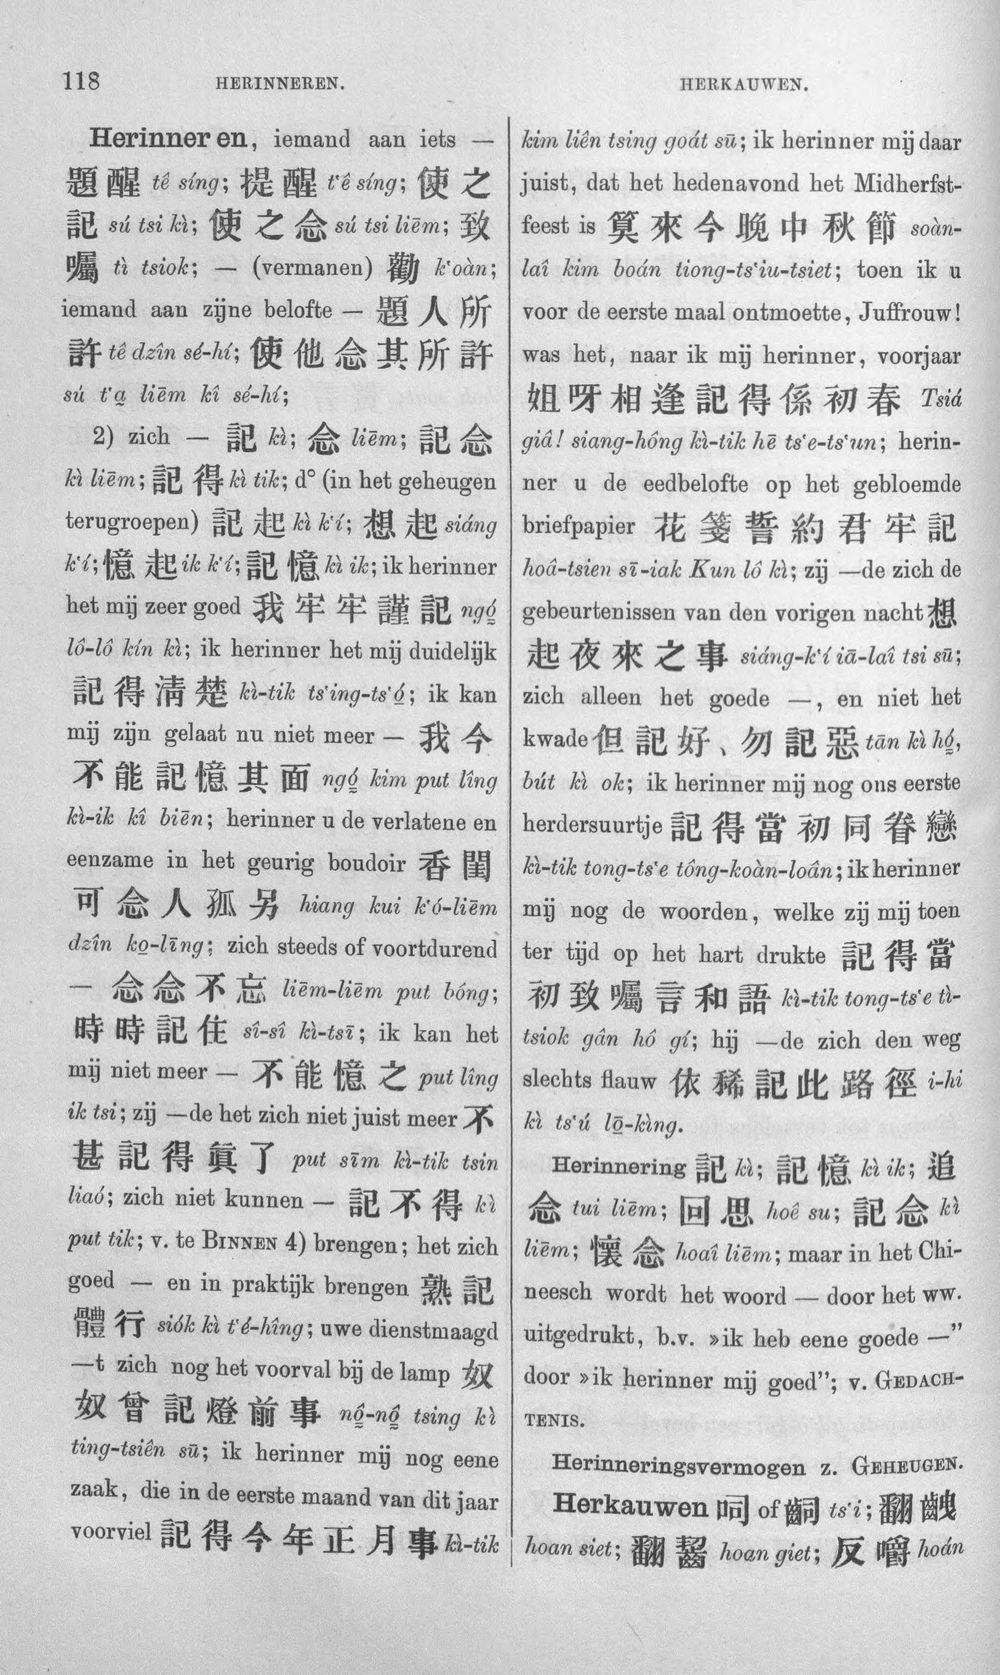 118 HERINNEREN. HERKAUWEN.
Herinneren, iemand aan iets —
題醒 tê síng; 提醒 t‘ê síng; 使之
記 sú tsi kì; 使之念 sú tsi liēm; 致
囑 tì tsiok; — (vermanen) 勸 k‘oàn;
iemand aan zijne belofte — 題人所
許 tê dzîn sé-hí; 使他念其所許
sú t‘a̱ liēm kî sé-hí;
2) zich — 記 kì; 念 liēm; 記念
kì liēm; 記得 kì tik; d° (in het geheugen
terugroepen) 記起 kì k‘í; 想起 siáng
k‘í; 憶起 ik k‘í; 記憶 kì ik; ik herinner
het mij zeer goed 我牢牢謹記 ngó̱
lô-lô kín kì; ik herinner het mij duidelijk
記得清楚 kì-tik ts‘ing-ts‘ó̱; ik kan
mij zijn gelaat nu niet meer — 我今
不能記憶其面 ngó̱ kim put lîng
kì-ik kî biēn; herinner u de verlatene en
eenzame in het geurig boudoir 香閨
可念人孤另 hiang kui k‘ó-liēm
dzîn ko̱-līng; zich steeds of voortdurend
— 念念不忘 liēm-liēm put bóng;
時時記住 sî-sî kì-tsī; ik kan het
mij niet meer — 不能憶之 put lîng
ik tsi; zij —de het zich niet juist meer 不
甚記得眞了 put sīm kì-tik tsin
liaó; zich niet kunnen — 記不得 kì
put tik; v. te BINNEN 4) brengen; het zich
goed — en in praktijk brengen 熟記
體行 siók kì t‘é-hîng; uwe dienstmaagd
—t zich nog het voorval bij de lamp 奴
奴曾記燈前事 nô̱-nô̱ tsing kì
ting-tsiên sū; ik herinner mij nog eene
zaak, die in de eerste maand van dit jaar
voorviel 記得今年正月事 kì-tik
kim liên tsing goát sū; ik herinner mij daar
juist, dat het hedenavond het Midherfst-
feest is 算來今晚中秋節 soàn-
laî kim boán tiong-ts‘iu-tsiet; toen ik u
voor de eerste maal ontmoette, Juffrouw!
was het, naar ik mij herinner, voorjaar
姐呀相逢記得係初春 Tsiá
giâ! siang-hông kì-tik hē ts‘e-ts‘un; herin-
ner u de eedbelofte op het gebloemde
briefpapier 花箋誓約君牢記
hoâ-tsien sī-iak Kun lô kì; zij —de zich de
gebeurtenissen van den vorigen nacht 想
起夜來之事 siáng-k‘í iā-laî tsi sū;
zich alleen het goede —, en niet het
kwade 但記好、勿記惡 tān kì hó̱,
bút kì ok; ik herinner mij nog ons eerste
herdersuurtje 記得當初同眷戀
kì-tik tong-ts‘e tông-koàn-loân; ik herinner
mij nog de woorden, welke zij mij toen
ter tijd op het hart drukte 記得當
初致囑言和語 kì-tik tong-ts‘e tì-
tsiok gân hô gí; hij —de zich den weg
slechts flauw 依稀記此路徑 i-hi
kì ts‘ú lō̱-kìng.
Herinnering 記 kì; 記憶 kì ik; 追
念 tui liēm; 回思 hoê su; 記念 kì
liēm; 懷念 hoaî liēm; maar in het Chi-
neesch wordt het woord — door het ww.
uitgedrukt, b.v. »ik heb eene goede —”
door »ik herinner mij goed”; v. GEDACH-
TENIS.
Herinneringsvermogen z. GEHEUGEN.
Herkauwen 呞 of 齝 ts‘i; 翻齥
hoan siet; 翻齧 hoan giet; 反嚼 hoán